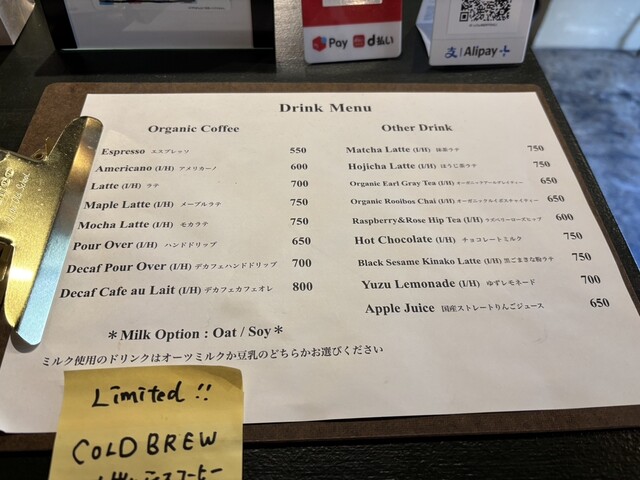 Pay d払い
支 Alipay+
Drink Menu
Organic Coffee
Espresso エスプレッソ 550
Americano (I/H) アメリカーノ 600
Latte (I/H) ラテ 700
Maple Latte (I/H) メープルラテ 750
Mocha Latte (I/H) モカラテ 750
Pour Over (I/H) ハンドドリップ 650
Decaf Pour Over (I/H) デカフェハンドドリップ 700
Decaf Cafe au Lait (I/H) デカフェカフェオレ 800
Other Drink
Matcha Latte (I/H) 抹茶ラテ 750
Hojicha Latte (I/H) ほうじ茶ラテ 750
Organic Earl Gray Tea (I/H) オーガニックアールグレイティー 650
Organic Rooibos Chai (I/H) オーガニックルイボスチャイティー 650
Raspberry&Rose Hip Tea (I/H) ラズベリーローズヒップ 600
Hot Chocolate (I/H) チョコレートミルク 750
Black Sesame Kinako Latte (I/H) 黒ごまきな粉ラテ 750
Yuzu Lemonade (I/H) ゆずレモネード 700
Apple Juice 国産ストレートりんごジュース 650
＊Milk Option : Oat / Soy＊
ミルク使用のドリンクはオーツミルクか豆乳のどちらかお選びください
Limited !!
COLD BREW